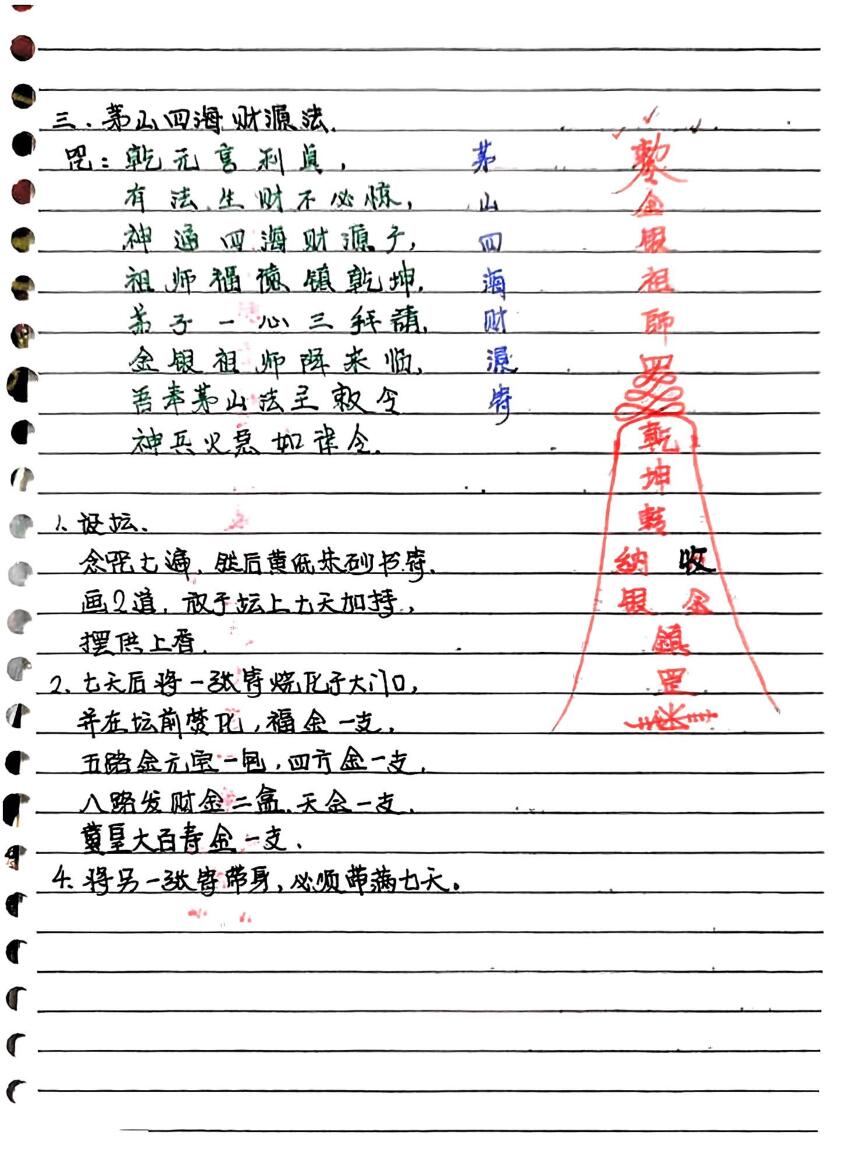 三.茅山四海财源法.
咒:乾元亨利真,
有法生财不必惊,
神通四海财源子,
祖师福德镇乾坤.
弟子一心三拜請.
金银祖师降来临,
吾奉茅山法主敕令
神兵火急如律令.
茅山四海财源符
敕令
金银祖師
乾坤转
納 收
银 金
鎮
罡
1.设坛.
念咒七遍,然后黄纸朱砂书符.
画2道,放于坛上七天加持,
摆供上香.
2.七天后将一张符烧化于大门口,
并在坛前焚化,福金一支,
五路金元宝一包,四方金一支,
八路发财金二盒.天金一支.
黄皇大百寿金一支.
4.将另一张符带身,必须带满七天。